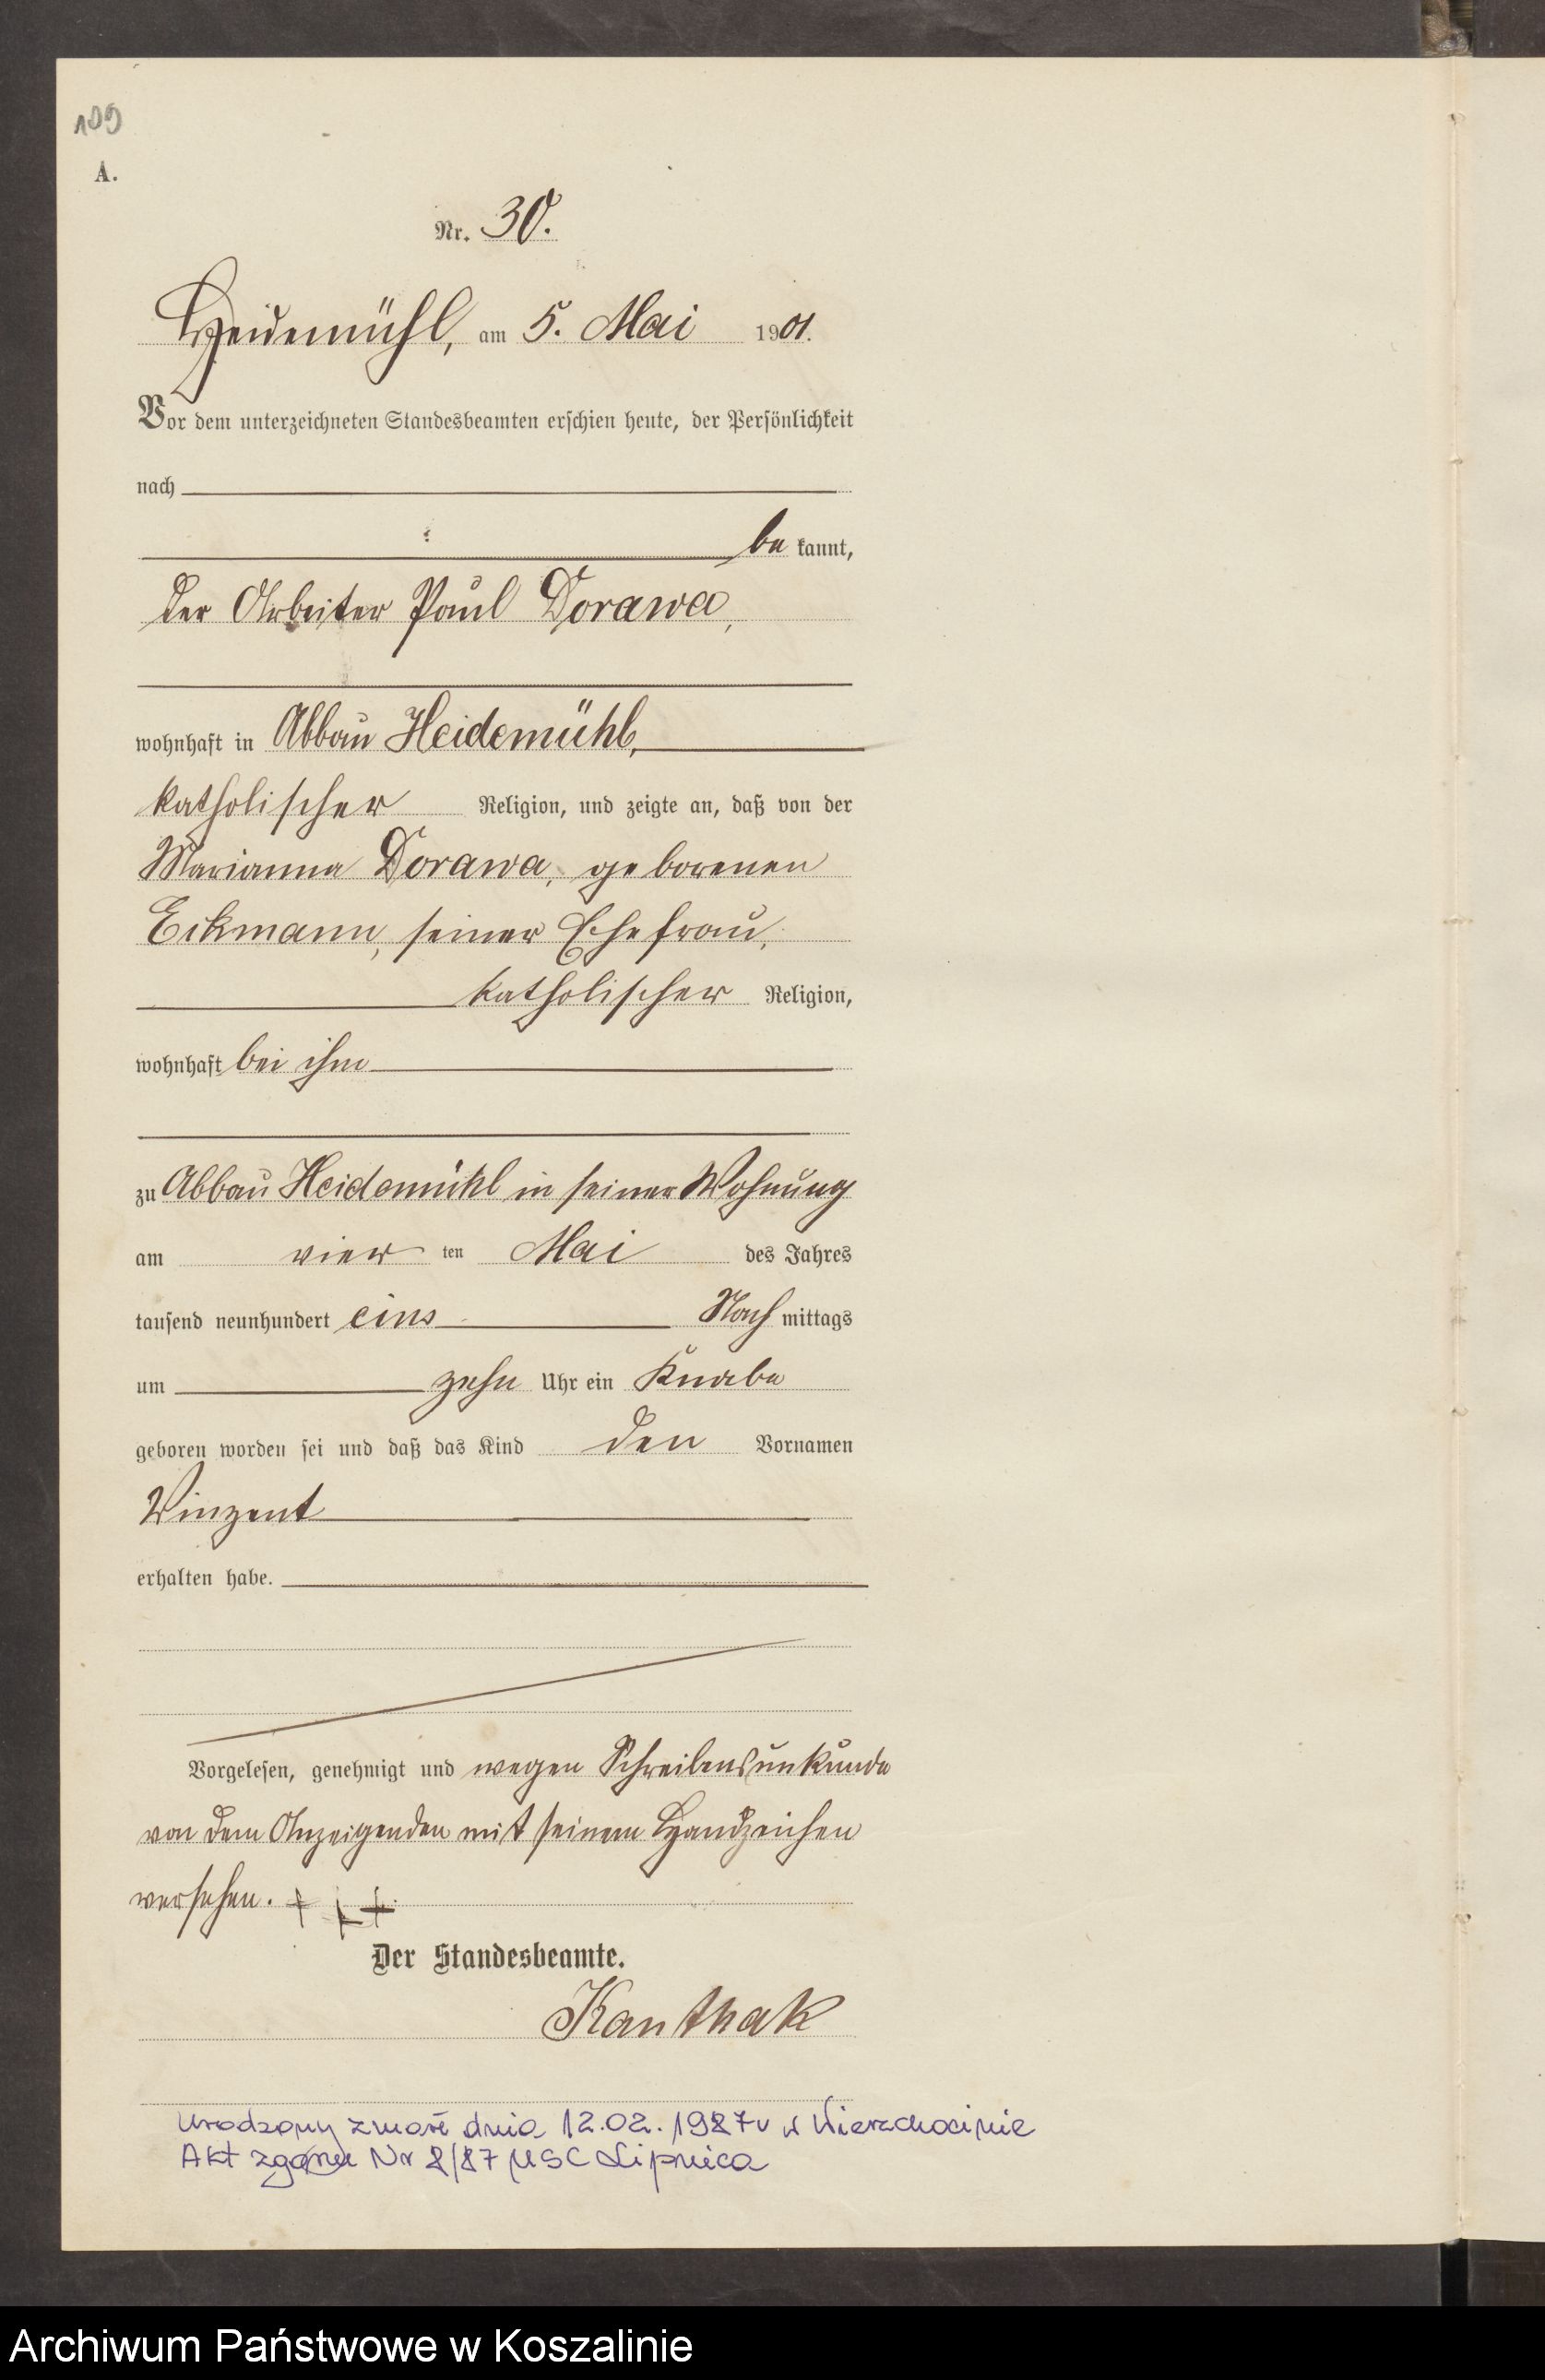 109
A.
Nr. 30.
Heidemühl, am 5. Mai 1901.
Vor dem unterzeichneten Standesbeamten erschien heute, der Persönlichkeit
nach
be kannt,
der Arbeiter Paul Dorawa,
wohnhaft in Abbau Heidemühl,
katholischer Religion, und zeigte an, daß von der
Marianna Dorawa, geborenen
Eikmann, seiner Ehefrau,
katholischer Religion,
wohnhaft bei ihm
zu Abbau Heidemühl in seiner Wohnung
am vier ten Mai des Jahres
tausend neunhundert eins Nach mittags
um zehn Uhr ein Knabe
geboren worden sei und daß das Kind den Vornamen
Vinzent
erhalten habe.
Vorgelesen, genehmigt und wegen Schreibensunkunde
von dem Anzeigenden mit seinem Handzeichen
versehen. + + +
Der Standesbeamte.
Kanthak
Urodzony zmarł dnia 12.02.1987 r w Wierzchocinie
Akt zgonu Nr 8/87 USC Lipnica
Archiwum Państwowe w Koszalinie